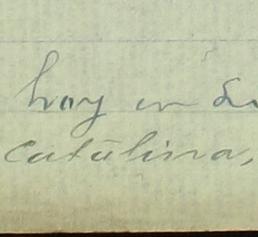 hoy en
catalina,